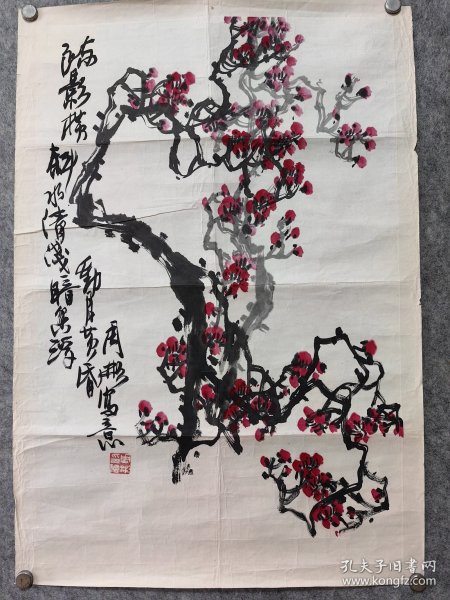 疏影横斜水清浅暗香浮
动月黄昏
周彬写意
孔夫子旧书网
www.kongfz.com